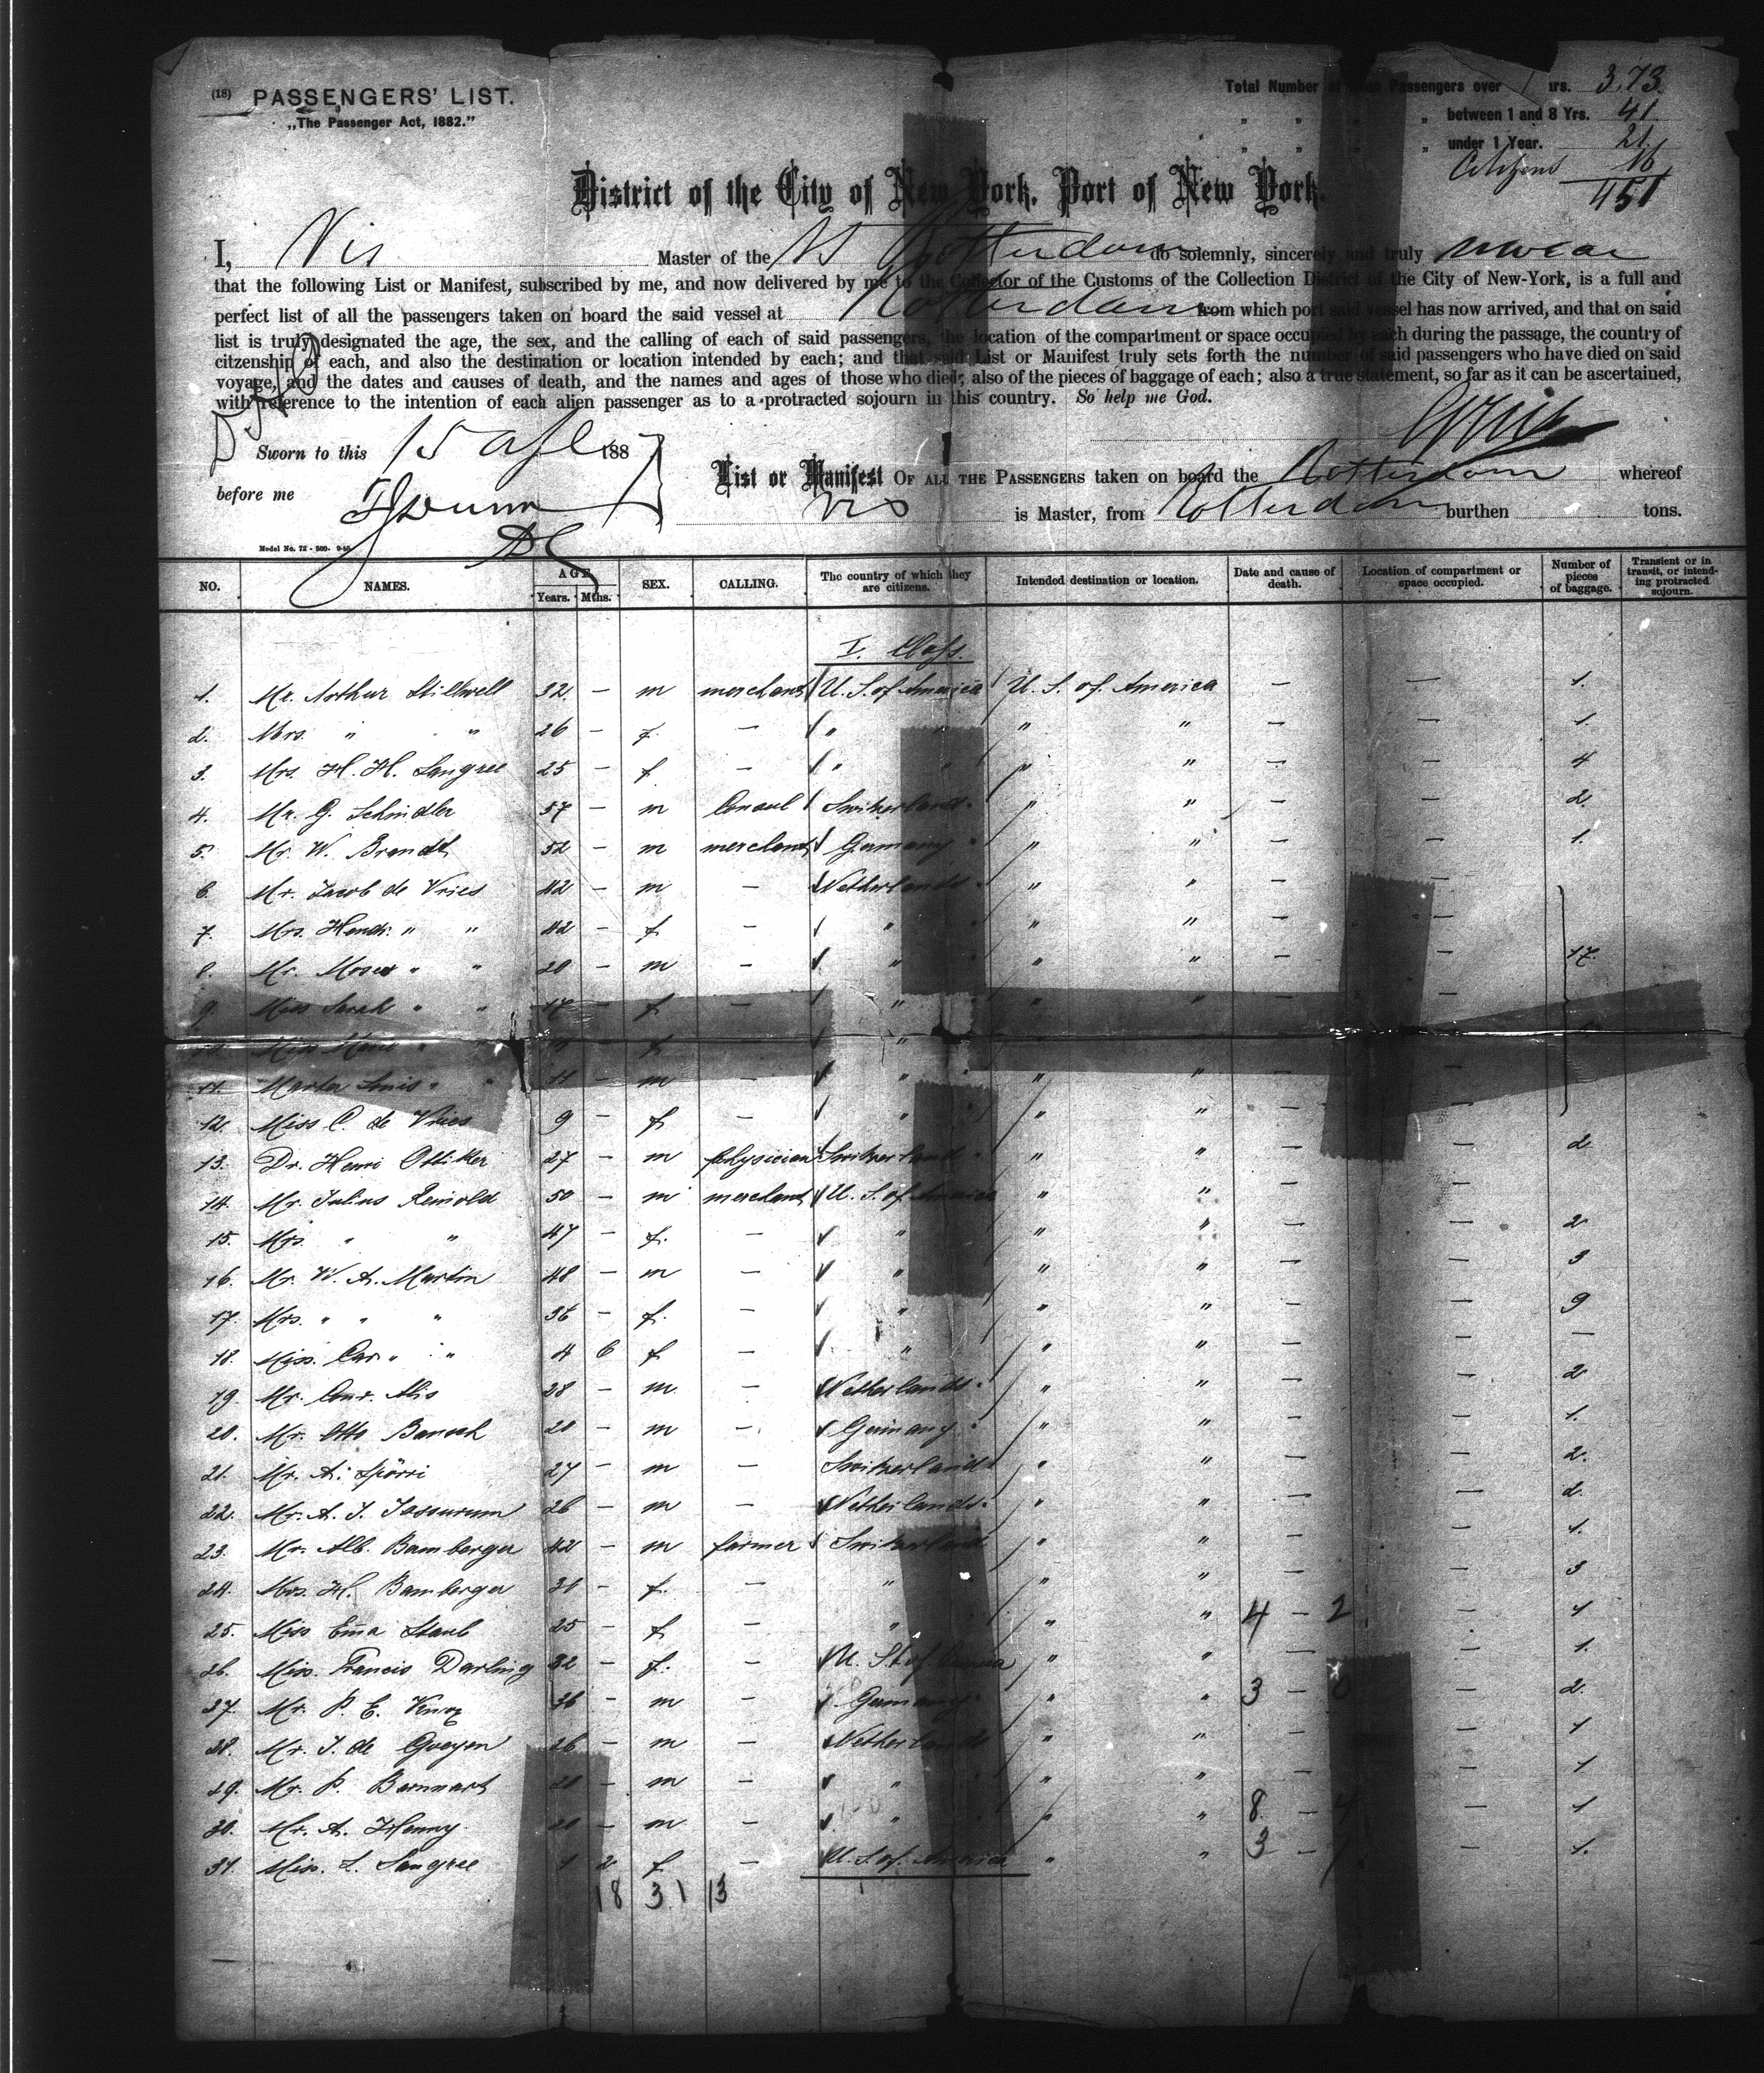 (18) PASSENGERS' LIST.
„The Passenger Act, 1882."
Total Number of Passengers over 1 yrs. 373.
„ „ „ „ between 1 and 8 Yrs. 41.
„ „ „ „ under 1 Year. 21.
Citizens 16
451
District of the City of New York, Port of New York.
I, Vis Master of the Rotterdam do solemnly, sincerely and truly swear
that the following List or Manifest, subscribed by me, and now delivered by me to the Collector of the Customs of the Collection District of the City of New-York, is a full and
perfect list of all the passengers taken on board the said vessel at Rotterdam from which port said vessel has now arrived, and that on said
list is truly designated the age, the sex, and the calling of each of said passengers, the location of the compartment or space occupied by each during the passage, the country of
citzenship of each, and also the destination or location intended by each; and that said List or Manifest truly sets forth the number of said passengers who have died on said
voyage, and the dates and causes of death, and the names and ages of those who died; also of the pieces of baggage of each; also a true statement, so far as it can be ascertained,
with reference to the intention of each alien passenger as to a protracted sojourn in this country. So help me God.
Sworn to this 15 188
before me
List or Manifest OF ALL THE PASSENGERS taken on board the Rotterdam whereof
Vis is Master, from Rotterdam burthen tons.
Model No. 72 - 500-
NO. NAMES. AGE Years. Mths. SEX. CALLING. The country of which they are citizens. Intended destination or location. Date and cause of death. Location of compartment or space occupied. Number of pieces of baggage. Transient or in transit, or intending protracted sojourn.
I. Class.
1. Mr. Arthur Stillwell 32 — m merchant U. S. of America U. S. of America — — 1.
2. Mrs. " " 26 — f. — " " " — — 1.
3. Mrs. H. H. Sangree 25 — f — " " " — — 4
4. Mr. G. Schindler 57 — m Consul Switzerland " " — — 2.
5. Mr. W. Brandt 52 — m merchant Germany " " — — 1.
6. Mr. Jacob de Vries 42 — m — Netherlands " " — —
7. Mrs. Hendr. " " 42 — f — " " " — —
8. Mr. Moses " " 20 — m — " " " — — 17.
9. Miss Sarah " " 17 — f — " " " — —
Miss " " f "
11. Master Louis " " 11 — m — " " " — —
12. Miss C. de Vries 9 — f — " " " — —
13. Dr. Henri Ottiker 27 — m physician Switzerland " " — — 2
14. Mr. Julius Reinold 50 — m merchant U. S. of America " " — —
15. Mrs. " " 47 — f. — " " " — — 2
16. Mr. W. A. Martin 48 — m — " " " — — 3
17. Mrs. " " " 36 — f. — " " " — — 9
18. Miss. Car " " 4 6 f — " " " — — —
19. Mr. 28 — m. — Netherlands " " — — 2
20. Mr. Otto 20 — m — Germany " " — — 1.
21. Mr. A. Spörri 27 — m — Switzerland " " — — 2.
22. Mr. A. J. 26 — m — Netherlands " " — — 2.
23. Mr. Alb. Bamberger 42 — m farmer Switzerland " " — — 1.
24. Mrs. H. Bamberger 31 — f. — " " " — — 3
25. Miss Ema Staub 25 — f — " " " 4 — 2 — 1
26. Miss. Francis Darling 32 — f. — U. St. of America " " — — 1.
27. Mr. P. E. 36 — m — Germany " " 3 — 0 — 2.
28. Mr. J. de 26 — m — Netherlands " " — 1
29. Mr. P. 20 — m — " " " — 1
30. Mr. A. Henny 20 — m — " " " 8 — 4 — 1
31. Miss. L. Sangree 1 2 f — U. S. of America " " 3 — 1 — 1.
18 31 13